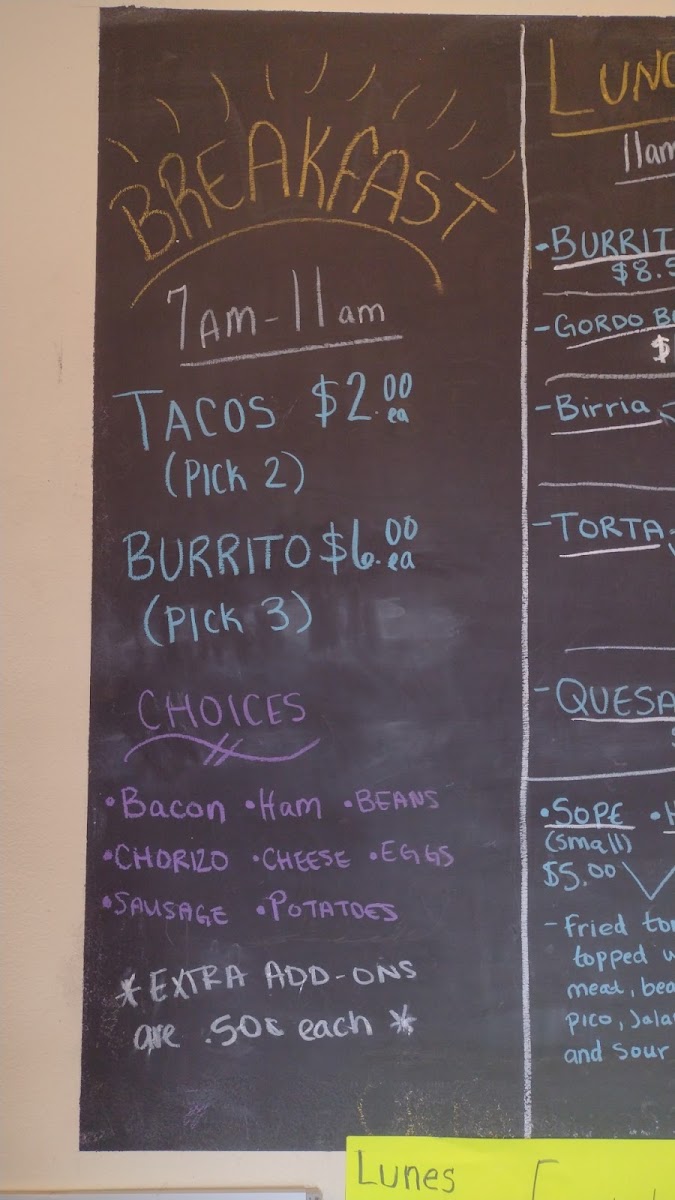 BREAKFAST
7AM-11am
TACOS $2.00 ea
(PICK 2)
BURRITO $6.00 ea
(PICK 3)
CHOICES
• Bacon • Ham • BEANS
• CHORIZO • CHEESE • EGGS
• SAUSAGE • POTATOES
* EXTRA ADD-ONS
are .50¢ each *
11am
$8.5
- GORDO
$
- Birria
- TORTA
• SOPE
(small)
$5.00
- Fried
topped
meat,
pico,
and sour
Lunes